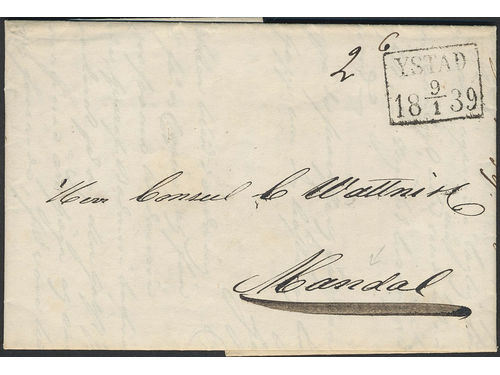 2 6
YSTAD
18 9/1 39
Herr Consul C Wattne
Mandal